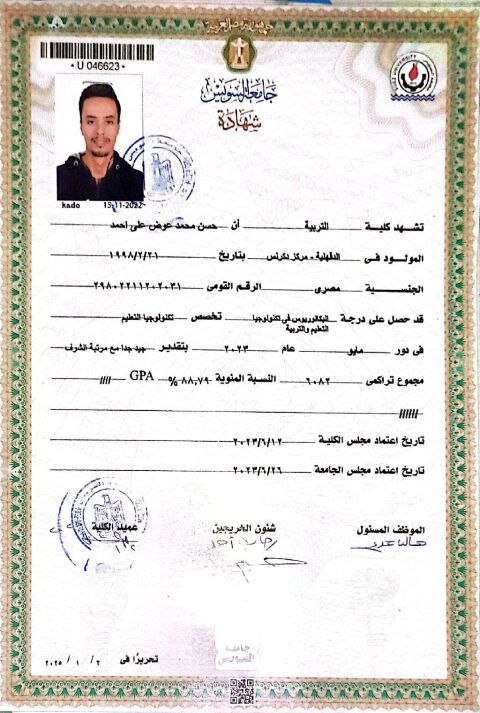 جمهورية مصر العربية
• U 046623 •
SUEZ UNIVERSITY
جامعة السويس
شهادة
kado 15-11-2022
تشهد كلية التربية أن حسن محمد عوض على احمد
المولود فى الدقهلية - مركز دكرنس بتاريخ ١٩٩٨/٢/٢١
الجنسية مصرى الرقم القومى ٢٩٨٠٢٢١١٢٠٢٠٣١
قد حصل على درجة البكالوريوس فى تكنولوجيا التعليم والتربية تخصص تكنولوجيا التعليم
فى دور مايو عام ٢٠٢٣ بتقدير جيد جدا مع مرتبة الشرف
مجموع تراكمى ٦٠٨٢ النسبة المئوية ٨٨,٧٩ % GPA ////
//////
تاريخ اعتماد مجلس الكلية ٢٠٢٣/٦/١٢
تاريخ اعتماد مجلس الجامعة ٢٠٢٣/٦/٢٦
الموظف المسئول شئون الخريجين عميد الكلية
جامعة السويس
تحريرًا فى ٢ / ١ / ٢٠٢٥